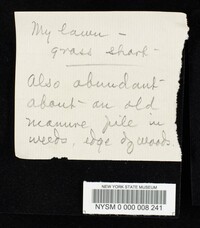 My lawn –
grass short –
Also abundant
about an old
manure pile in
weeds, edge of woods.
NEW YORK STATE MUSEUM
NYSM 0 000 008 241